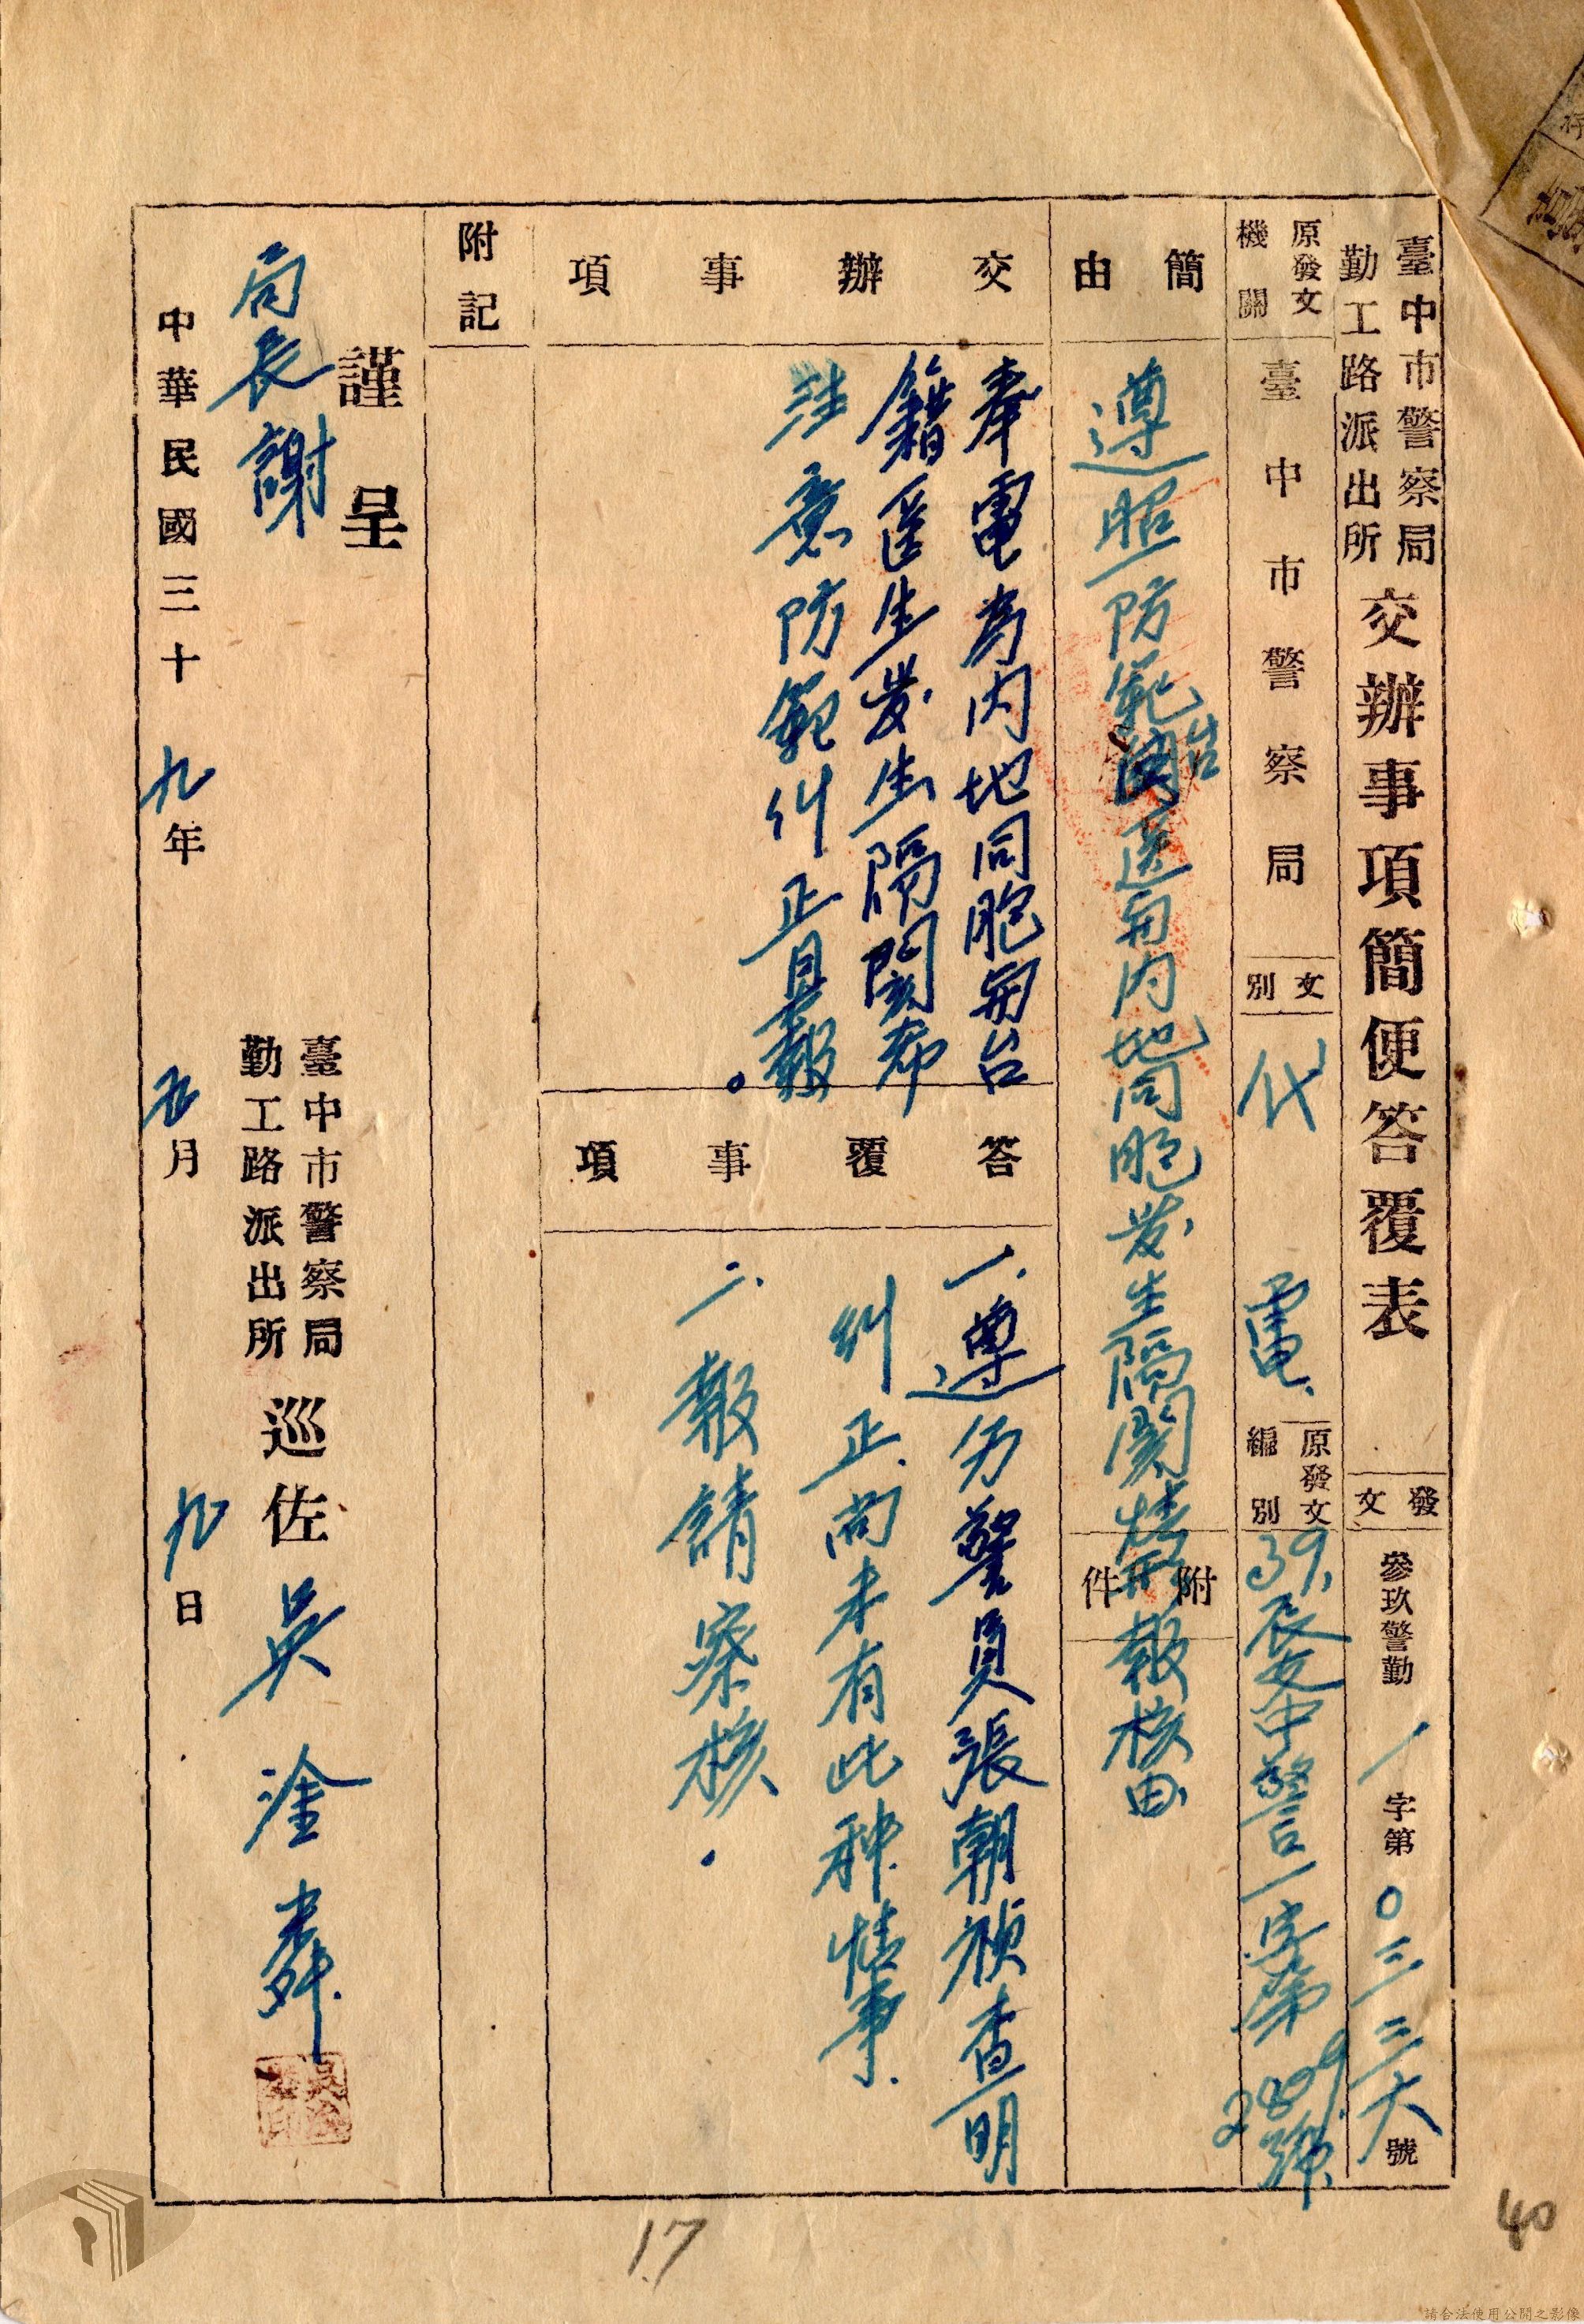 臺中市警察局
勤工路派出所
交辦事項簡便答覆表
發文
參玖警勤 一 字第 〇三三六 號
原發文機關
臺中市警察局
文別
代電
原發文編別
39.辰文中警一字第2899號
簡由
遵照防範台醫與內地同胞發生隔閡情形報核由
附件
交辦事項
奉電為內地同胞與台
籍醫生發生隔閡希
注意防範糾正具報。
答覆事項
一.遵另警員張朝禎查明
糾正尚未有此种情事.
二.報請察核.
附記
謹呈
局長謝
臺中市警察局
勤工路派出所
巡佐 吳塗
中華民國三十九年五月九日
17
40
請合法使用公開之影像